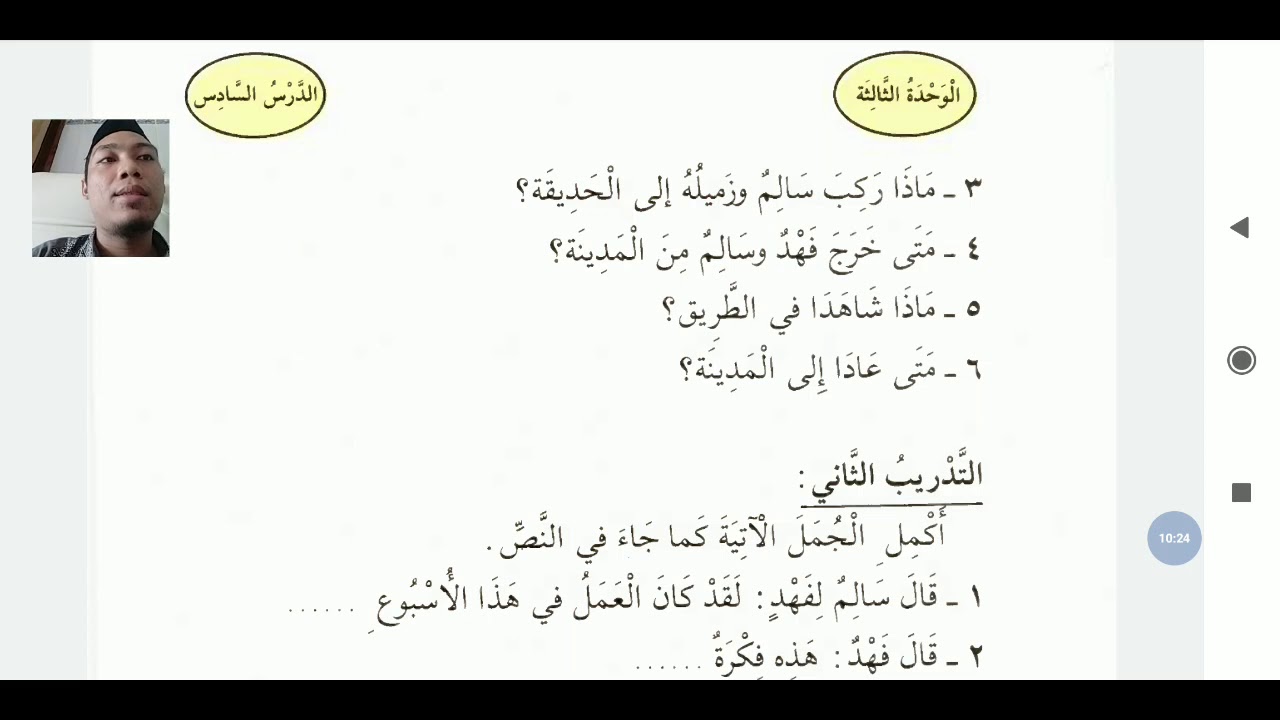 الْوَحْدَةُ الثَّالِثَة
الدَّرْسُ السَّادِس
٣ ـ مَاذَا رَكِبَ سَالِمٌ وزَمِيلُهُ إلى الْحَدِيقَة؟
٤ ـ مَتَى خَرَجَ فَهْدٌ وسَالِمٌ مِنَ الْمَدِينَة؟
٥ ـ مَاذَا شَاهَدَا في الطَّرِيق؟
٦ ـ مَتَى عَادَا إِلى الْمَدِينَة؟
التَّدْرِيبُ الثَّاني :
أَكْمِلِ الْجُمَلَ الْآتِيَةَ كَما جَاءَ في النَّصِّ .
١ ـ قَالَ سَالِمٌ لِفَهْدٍ : لَقَدْ كَانَ الْعَمَلُ في هَذَا الأُسْبُوعِ ......
٢ ـ قَالَ فَهْدٌ : هَذِه فِكْرَةٌ ......
10:24